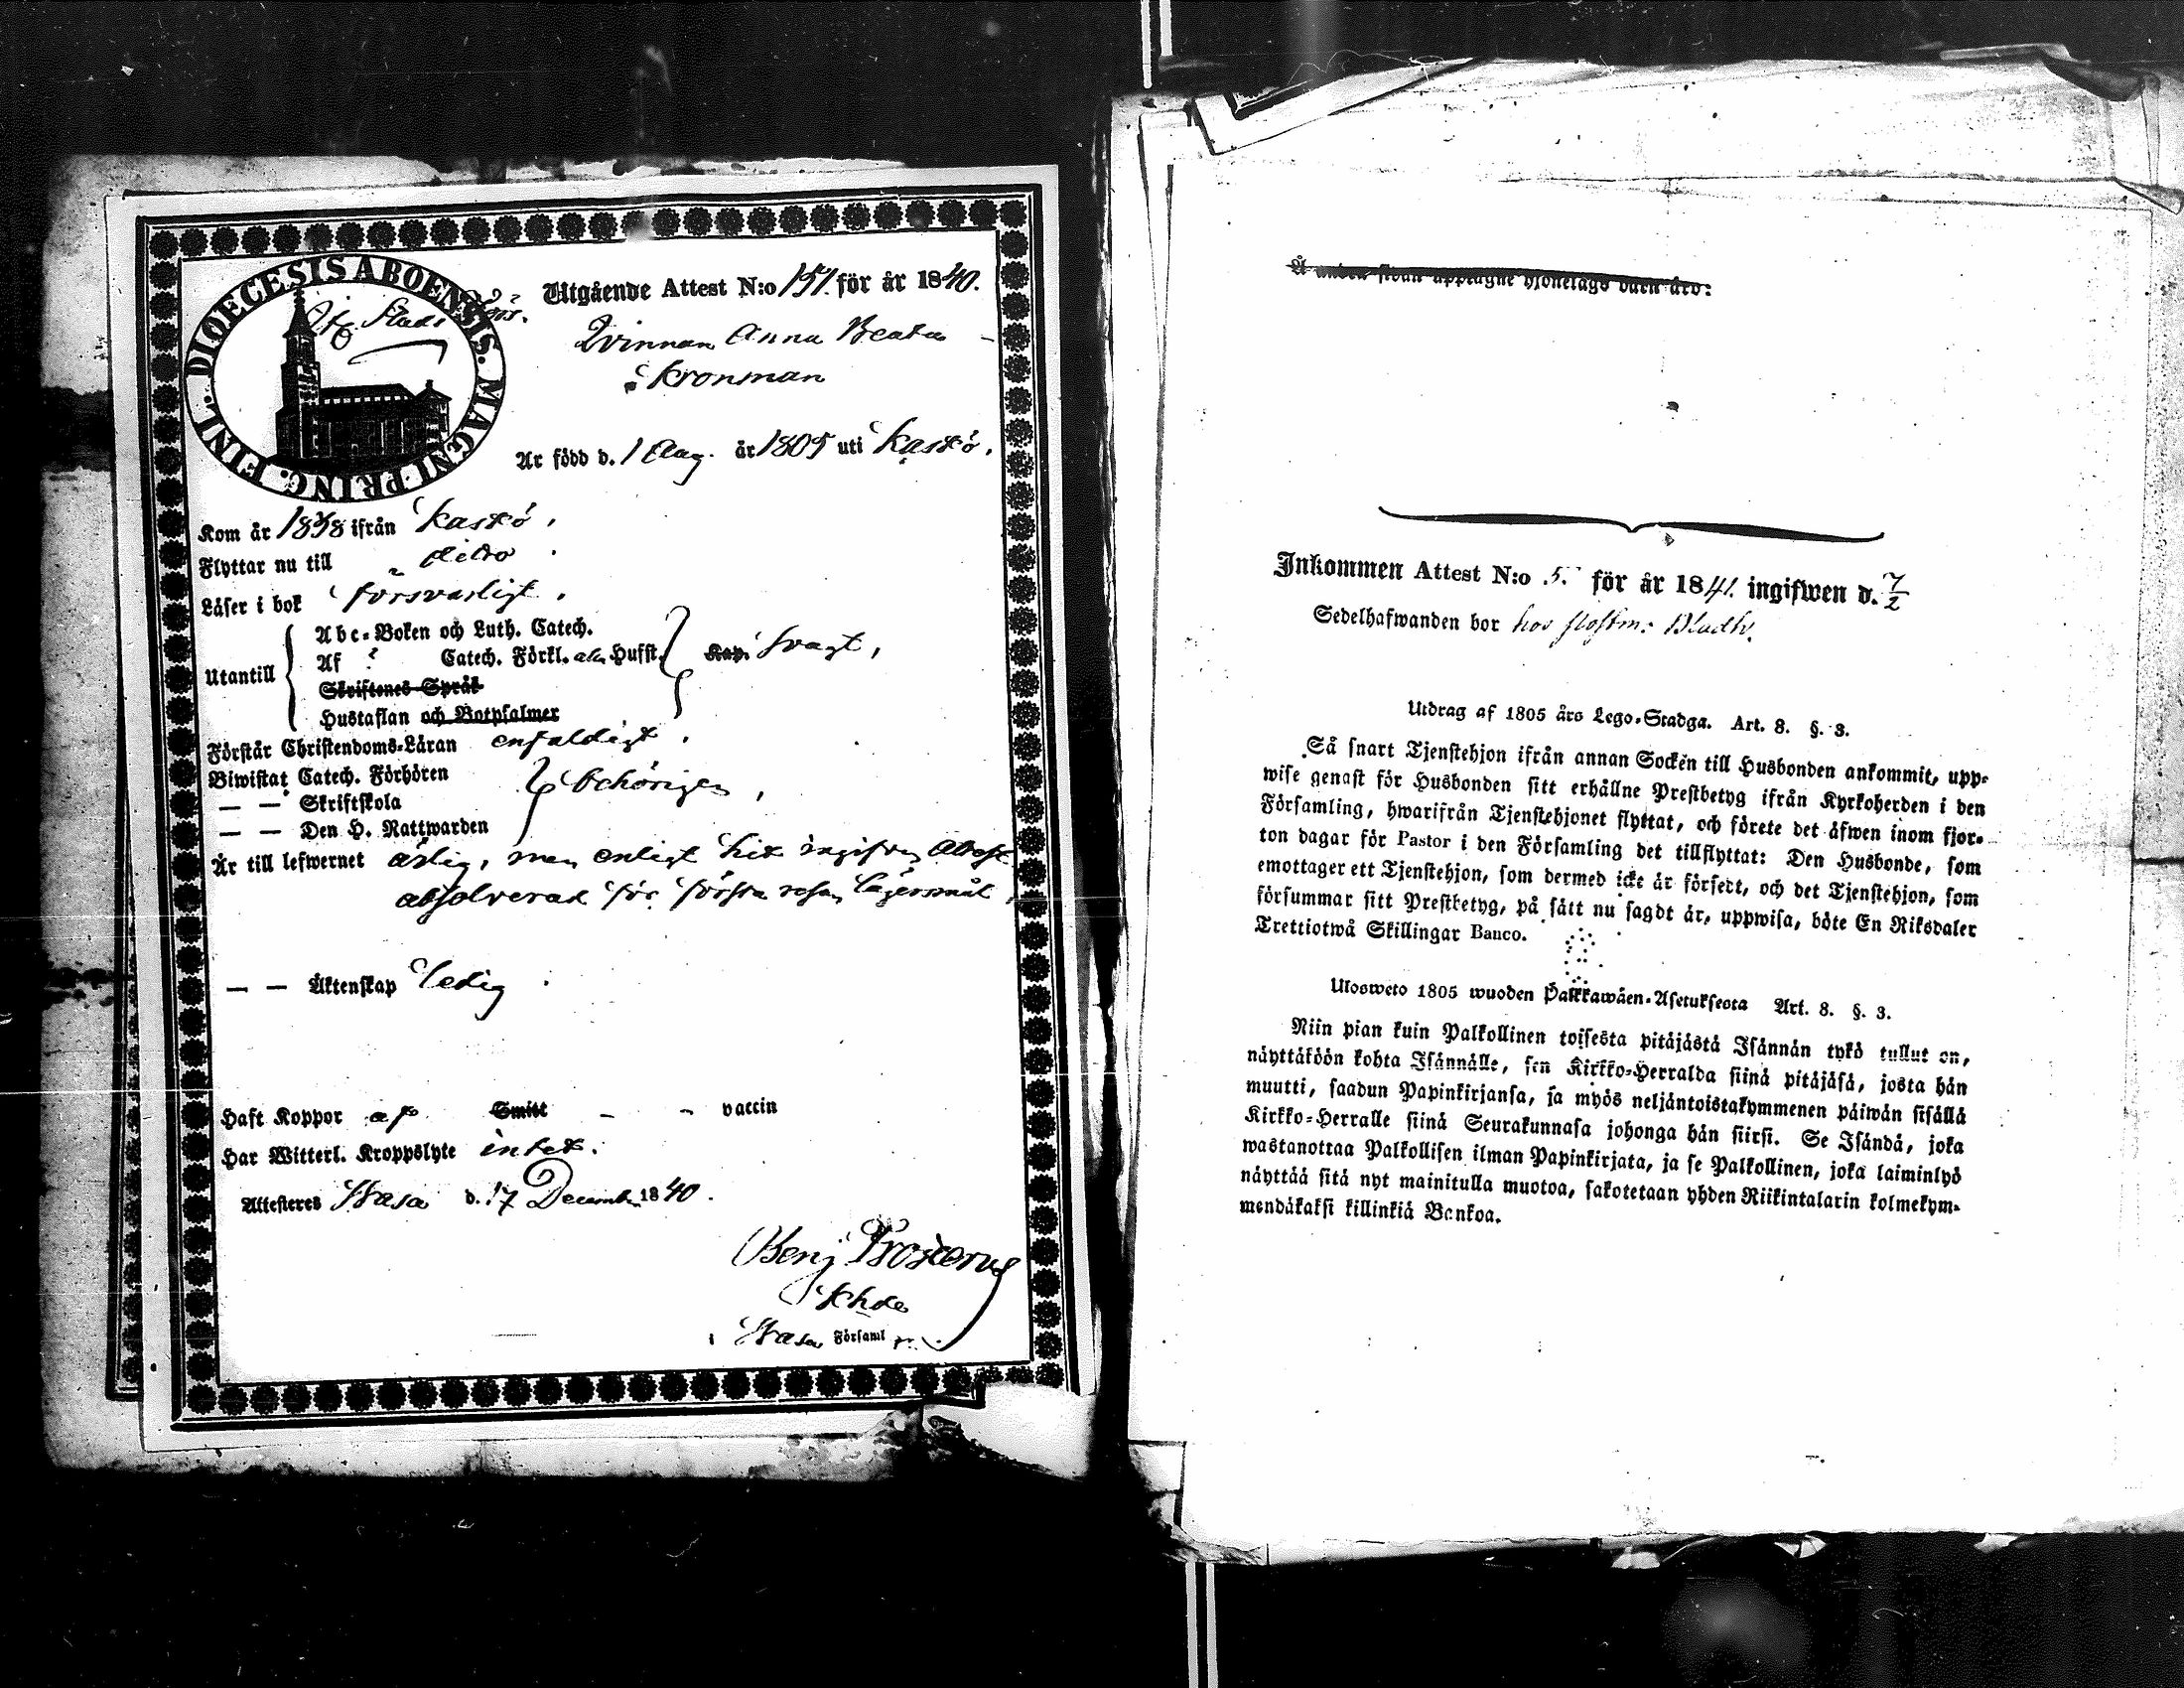 DIOECESIS ABOENSIS. MAGNI PRINC. FINL.
Utgående Attest N:o 151. för år 1840.
Qvinnan Anna Beata
Kronman
Är född d. 1 Aug. år 1805 uti Kaskö.
Kom år 1838 ifrån Kaskö,
Flyttar nu till dito
Läser i bok försvarligt.
Utantill
Abc-Boken och Luth. Catech.
Af Catech. Förkl. Hufst. Kap. Svagt,
Skriftenes Språk
Hustaflan och Botpsalmer
Förstår Christendoms-Läran enfaldigt.
Biwistat Catech. Förhören
— — Skriftskola behörigen,
— — Den H. Nattwarden
Är till lefwernet ärlig, men enligt hit ingifven Attest
absolverad för första resan lägersmål,
— — Äktenskap Ledig
Haft Koppor af Smitt - - vaccin
Har Witterl. Kroppslyte intet.
Attesteres Wasa d. 17 December 1840.
Benj Frosterus
Khde
Wasa Församl
Å andra sidan upptagne hjonelags barn äro:
Inkommen Attest N:o 5. för år 1841. ingifwen d. 7/2
Sedelhafwanden bor hos Bladh.
Utdrag af 1805 års Lego-Stadga. Art. 8. §. 3.
Så snart Tjenstehjon ifrån annan Socken till Husbonden ankommit, upp-
wise genast för Husbonden sitt erhållne Prestbetyg ifrån Kyrkoherden i den
Församling, hwarifrån Tjenstehjonet flyttat, och förete det äfwen inom fjor-
ton dagar för Pastor i den Församling det tillflyttat: Den Husbonde, som
emottager ett Tjenstehjon, som dermed icke är försedt, och det Tjenstehjon, som
försummar sitt Prestbetyg, på sätt nu sagdt är, uppwisa, böte En Riksdaler
Trettiotwå Skillingar Banco.
Ulosweto 1805 wuoden Palkkawäen-Asetuksesta Art. 8. §. 3.
Niin pian kuin Palkollinen toisesta pitäjästä Isännän tykö tullut on,
näyttäköön kohta Isännälle, sen Kirkko-Herralda siinä pitäjäsä, josta hän
muutti, saadun Papinkirjansa, ja myös neljäntoistakymmenen päiwän sisällä
Kirkko-Herralle siinä Seurakunnasa johonga hän siirsi. Se Isändä, joka
wastanottaa Palkollisen ilman Papinkirjata, ja se Palkollinen, joka laiminlyö
näyttää sitä nyt mainitulla muotoa, sakotetaan yhden Riikintalarin kolmekym-
mendäkaksi killinkiä Bankoa.